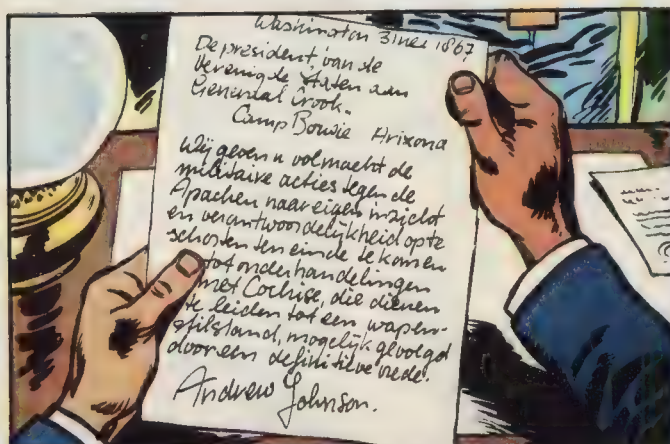 Washington 3 mei 1867
De president van de
Verenigde Staten aan
Generaal Crook.
Camp Bowie Arizona
Wij geven u volmacht de
militaire acties tegen de
Apachen naar eigen inzicht
en verantwoordelijkheid op te
schorten ten einde te komen
tot onderhandelingen
met Cochise, die dienen
te leiden tot een wapen-
stilstand, mogelijk gevolgd
door een definitieve vrede.
Andrew Johnson.